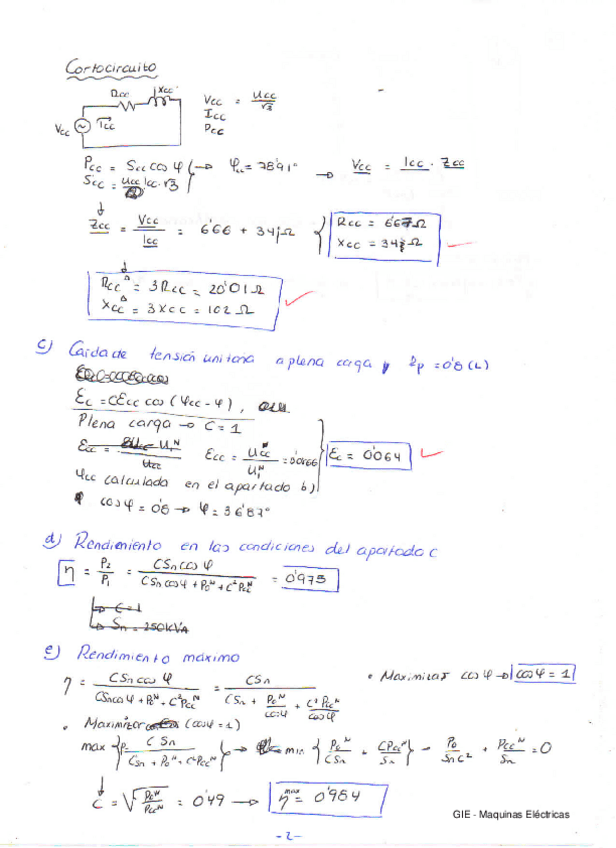 Cortocircuito
Rcc Xcc
Vcc Icc
Vcc = Ucc/√3
Icc
Pcc
Pcc = Scc cos φ → φcc = 78'91° → Vcc = Icc · Zcc
Scc = Ucc Icc·√3
Zcc = Vcc/Icc = 6'66 + 34j Ω { Rcc = 6'67 Ω
Xcc = 34j Ω
Rcc^Δ = 3Rcc = 20'01 Ω
Xcc^Δ = 3Xcc = 102 Ω
c) Caida de tensión unitaria a plena carga y fp = 0'8 (L)
Ec = C Ecc cos (φcc - φ),
Plena carga → C = 1
Ecc = U₁ᴺ/Ucc Ecc = Ucc/U₁ᴺ = 0'0466 Ec = 0'064
φcc calculada en el apartado b)
cos φ = 0'8 → φ = 36'87°
d) Rendimiento en las condiciones del apartado c
η = P₂/P₁ = C Sn cos φ / (C Sn cos φ + P₀ᴺ + C² Pccᴺ) = 0'975
→ C = 1
→ Sn = 250 kVA
e) Rendimiento máximo
η = C Sn cos φ / (C Sn cos φ + P₀ᴺ + C² Pccᴺ) = C Sn / (C Sn + P₀ᴺ/cos φ + C² Pccᴺ/cos φ) • Maximizar cos φ → cos φ = 1
• Maximizar (cos φ = 1)
max { C Sn / (C Sn + P₀ᴺ + C² Pccᴺ) } → min { P₀ᴺ/(C Sn) + C Pccᴺ/Sn } - P₀/(Sn C²) + Pccᴺ/Sn = 0
C = √(P₀ᴺ/Pccᴺ) = 0'49 → η^max = 0'984
GIE - Maquinas Eléctricas
-2-